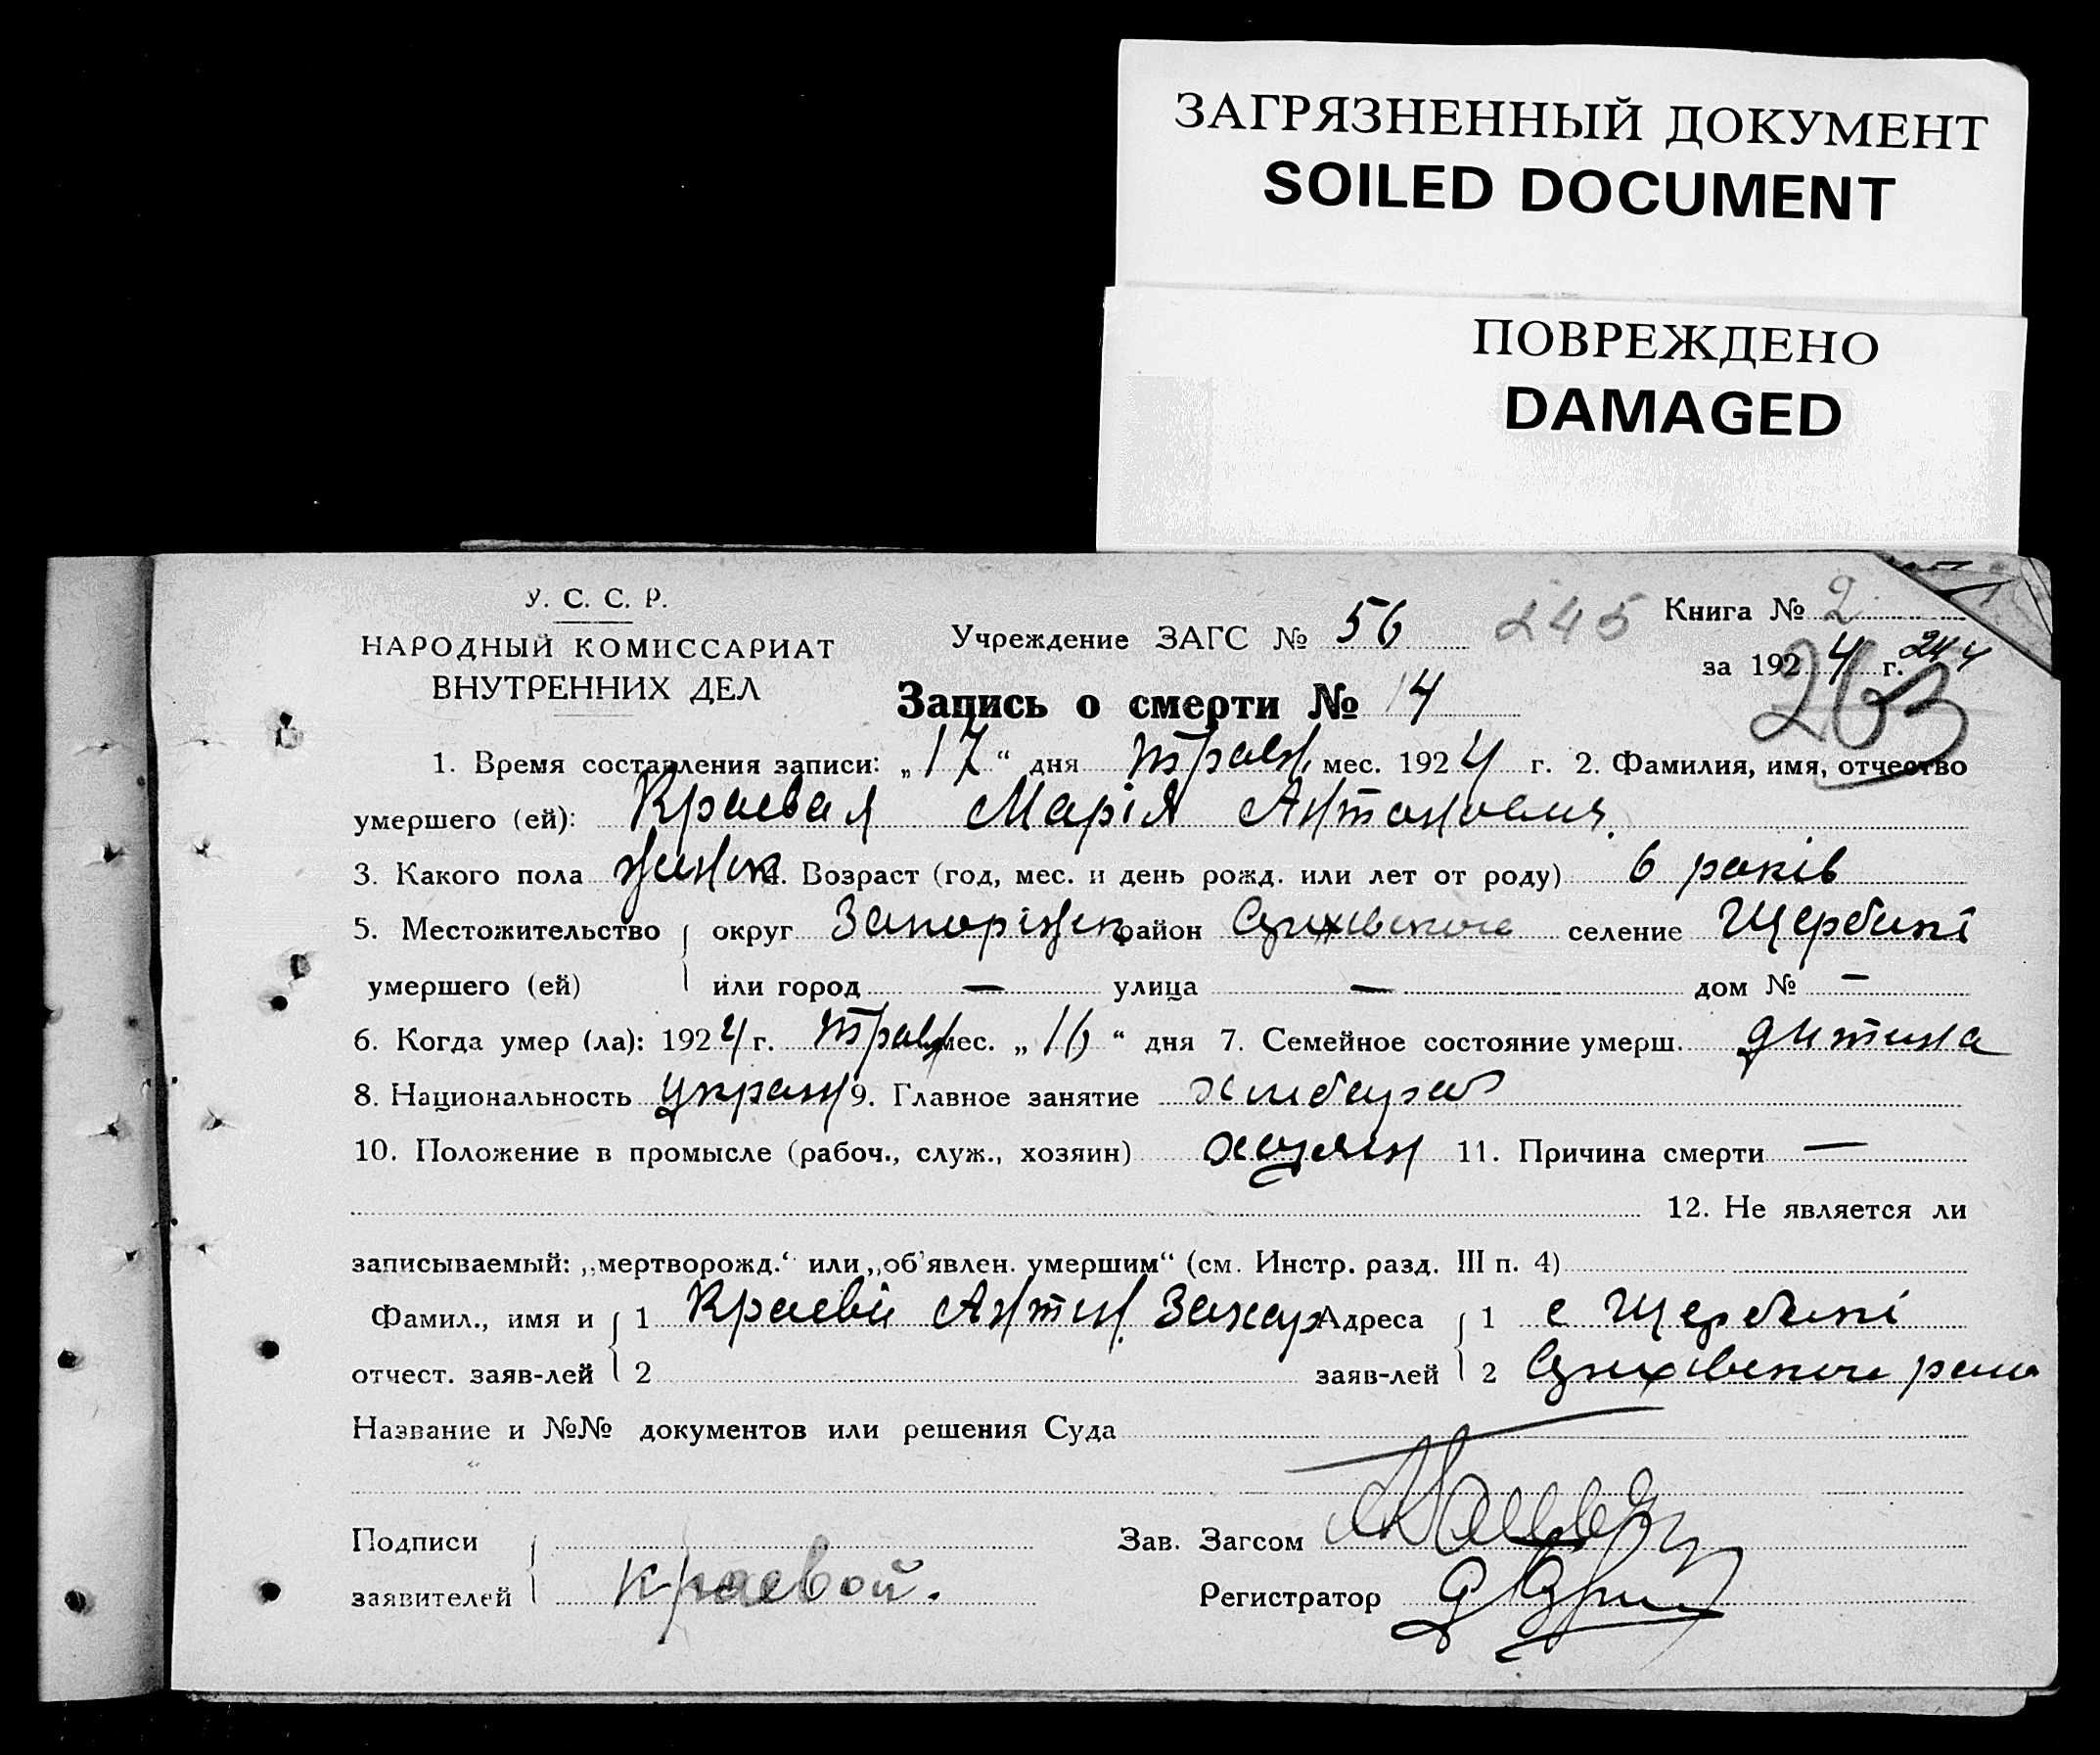 ЗАГРЯЗНЕННЫЙ ДОКУМЕНТ
SOILED DOCUMENT
ПОВРЕЖДЕНО
DAMAGED
У. С. С. Р.
НАРОДНЫЙ КОМИССАРИАТ
ВНУТРЕННИХ ДЕЛ
Учреждение ЗАГС № 56 245
Книга № 2
за 1924 г. 244
263
Запись о смерти № 14
1. Время составления записи: „17“ дня травн. мес. 1924 г. 2. Фамилия, имя, отчество
умершего (ей): Краевая Марія Антоновна
3. Какого пола жиноч 4. Возраст (год, мес. и день рожд. или лет от роду) 6 років
5. Местожительство округ Запоріжск район селение Щербині
умершего (ей) или город — улица — дом № —
6. Когда умер (ла): 1924 г. травн мес. „16“ дня 7. Семейное состояние умерш. дитина
8. Национальность украин 9. Главное занятие хлибороб
10. Положение в промысле (рабоч., служ., хозяин) хозяин 11. Причина смерти —
12. Не является ли
записываемый: „мертворожд.“ или „об'явлен. умершим“ (см. Инстр. разд. III п. 4)
Фамил., имя и 1 Краевий Антин Захар Адреса 1 с Щербині
отчест. заяв-лей 2 заяв-лей 2
Название и №№ документов или решения Суда
Подписи Зав. Загсом
заявителей Краевой. Регистратор